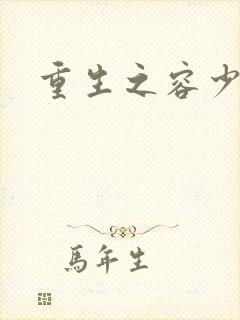 重生之容少
馬年生